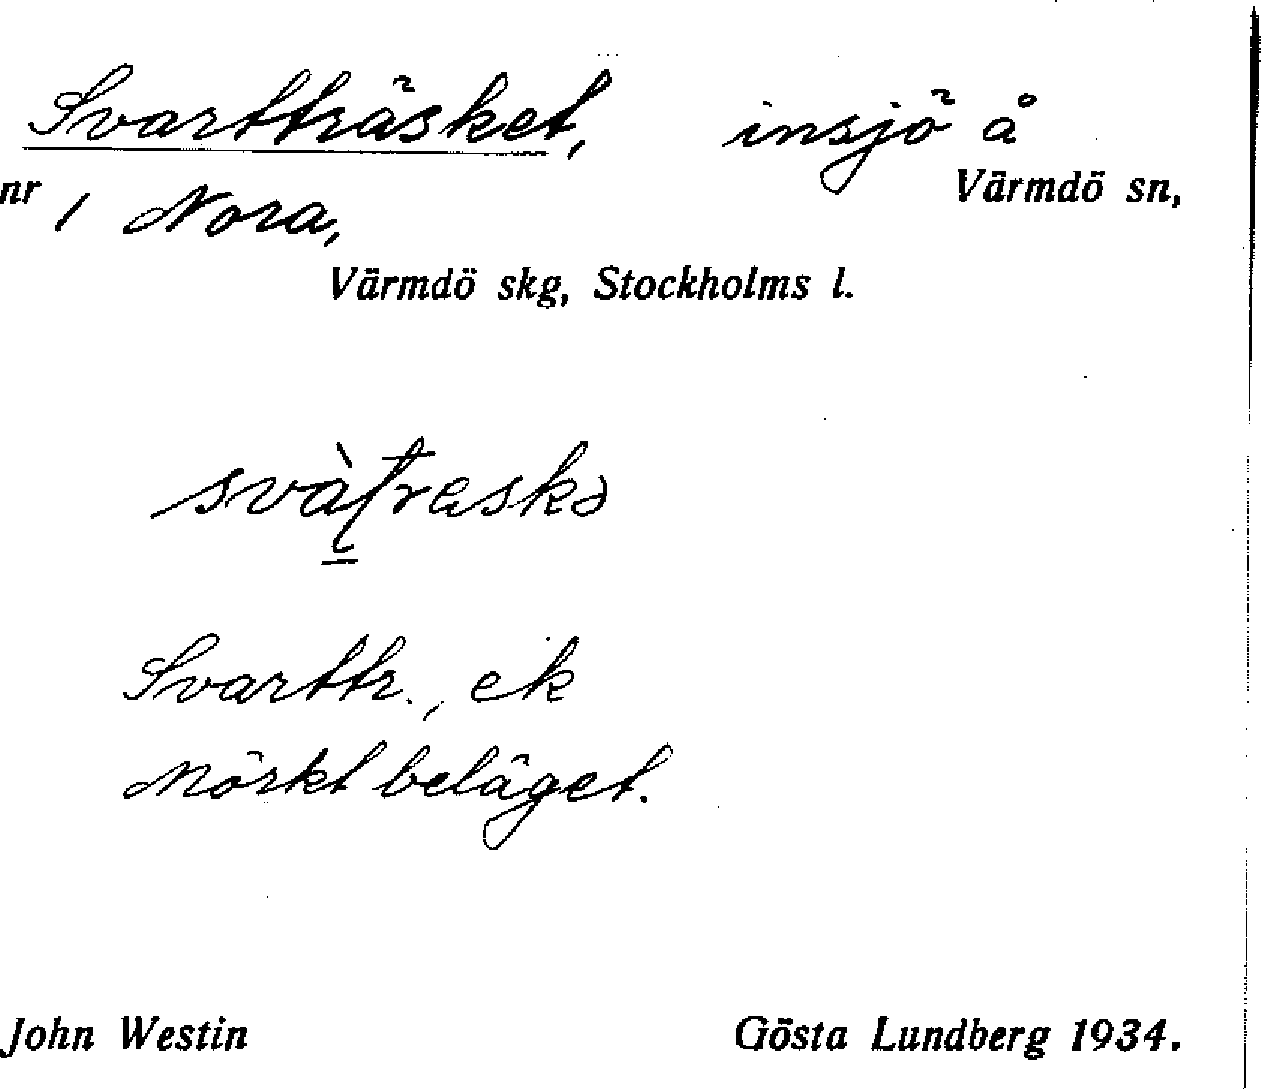 Svartträsket, insjö å
Värmdö sn,
nr 1 Nora,
Värmdö skg, Stockholms l.
Svarttr., ek
Mörkt beläget.
John Westin Gösta Lundberg 1934.